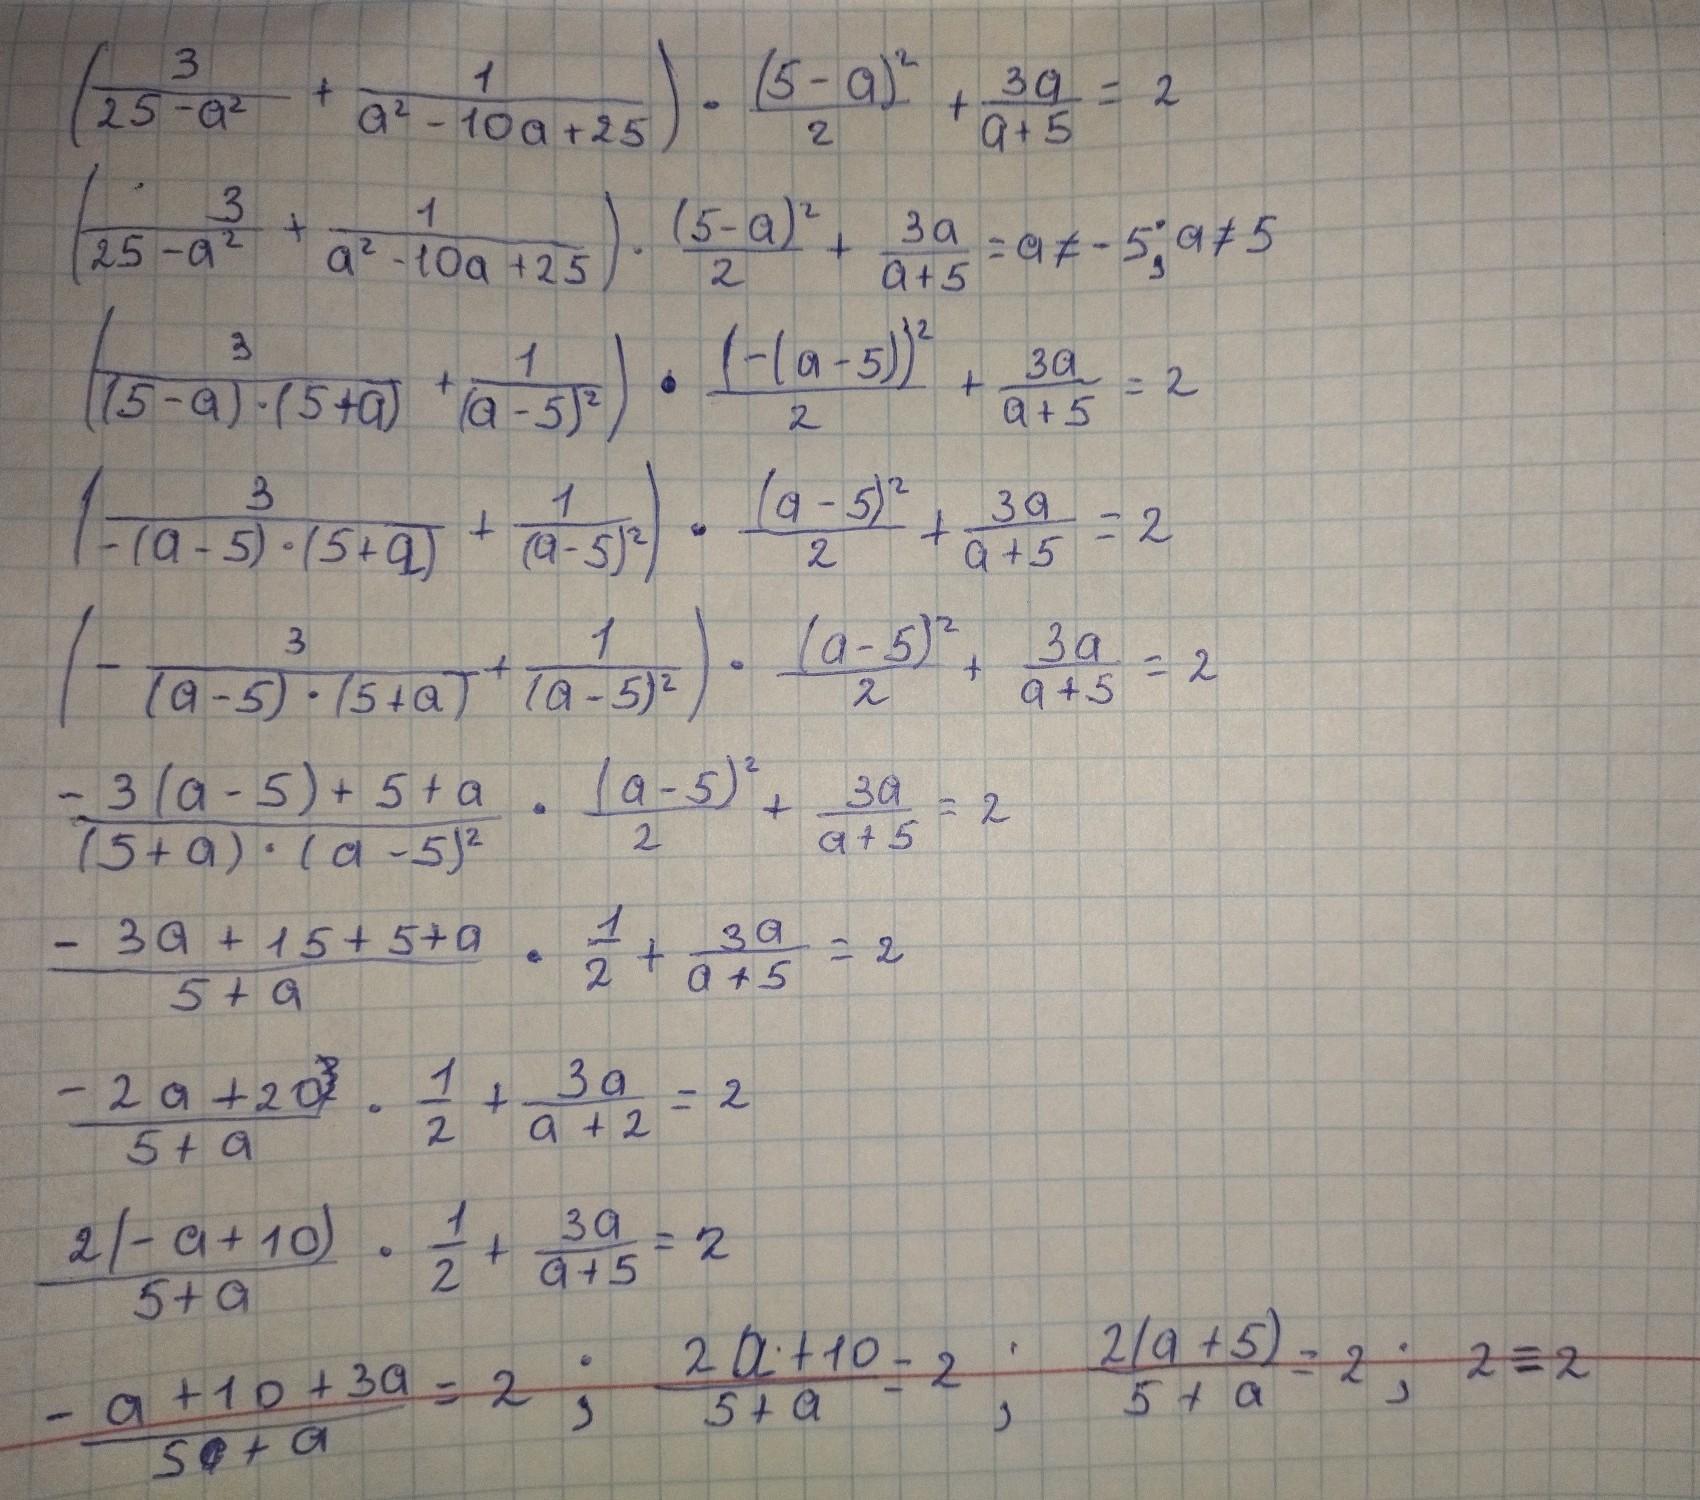 (3/(25-a²) + 1/(a²-10a+25)) · (5-a)²/2 + 3a/(a+5) = 2
(3/(25-a²) + 1/(a²-10a+25)) · (5-a)²/2 + 3a/(a+5) = a≠-5; a≠5
(3/((5-a)·(5+a)) + 1/(a-5)²) · (-(a-5))²/2 + 3a/(a+5) = 2
(3/(-(a-5)·(5+a)) + 1/(a-5)²) · (a-5)²/2 + 3a/(a+5) = 2
(- 3/((a-5)·(5+a)) + 1/(a-5)²) · (a-5)²/2 + 3a/(a+5) = 2
(-3(a-5)+5+a)/((5+a)·(a-5)²) · (a-5)²/2 + 3a/(a+5) = 2
(-3a+15+5+a)/(5+a) · 1/2 + 3a/(a+5) = 2
(-2a+20)/(5+a) · 1/2 + 3a/(a+2) = 2
2(-a+10)/(5+a) · 1/2 + 3a/(a+5) = 2
(-a+10+3a)/(5+a) = 2 ; (2a+10)/(5+a) = 2 ; 2(a+5)/(5+a) = 2 ; 2≡2